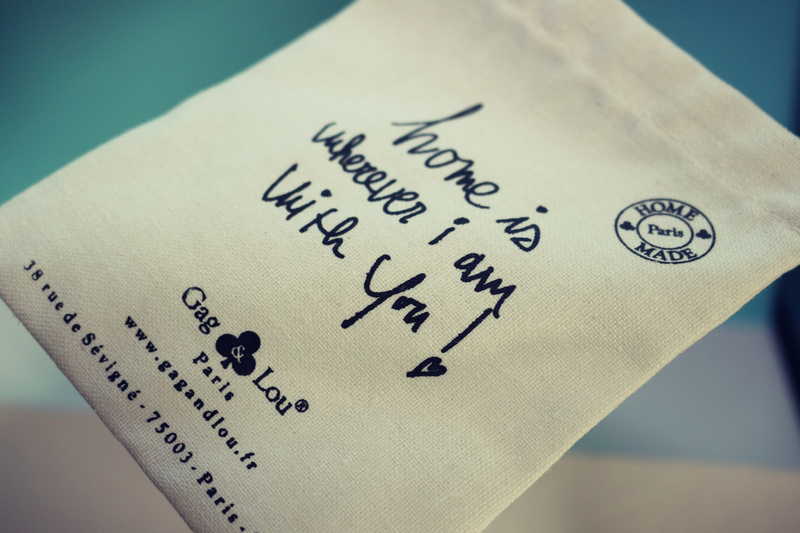 home is
wherever i am
with you!
HOME
Paris
MADE
Gag & Lou®
Paris
www.gagandlou.fr
38 rue de Sévigné - 75003 - Paris -